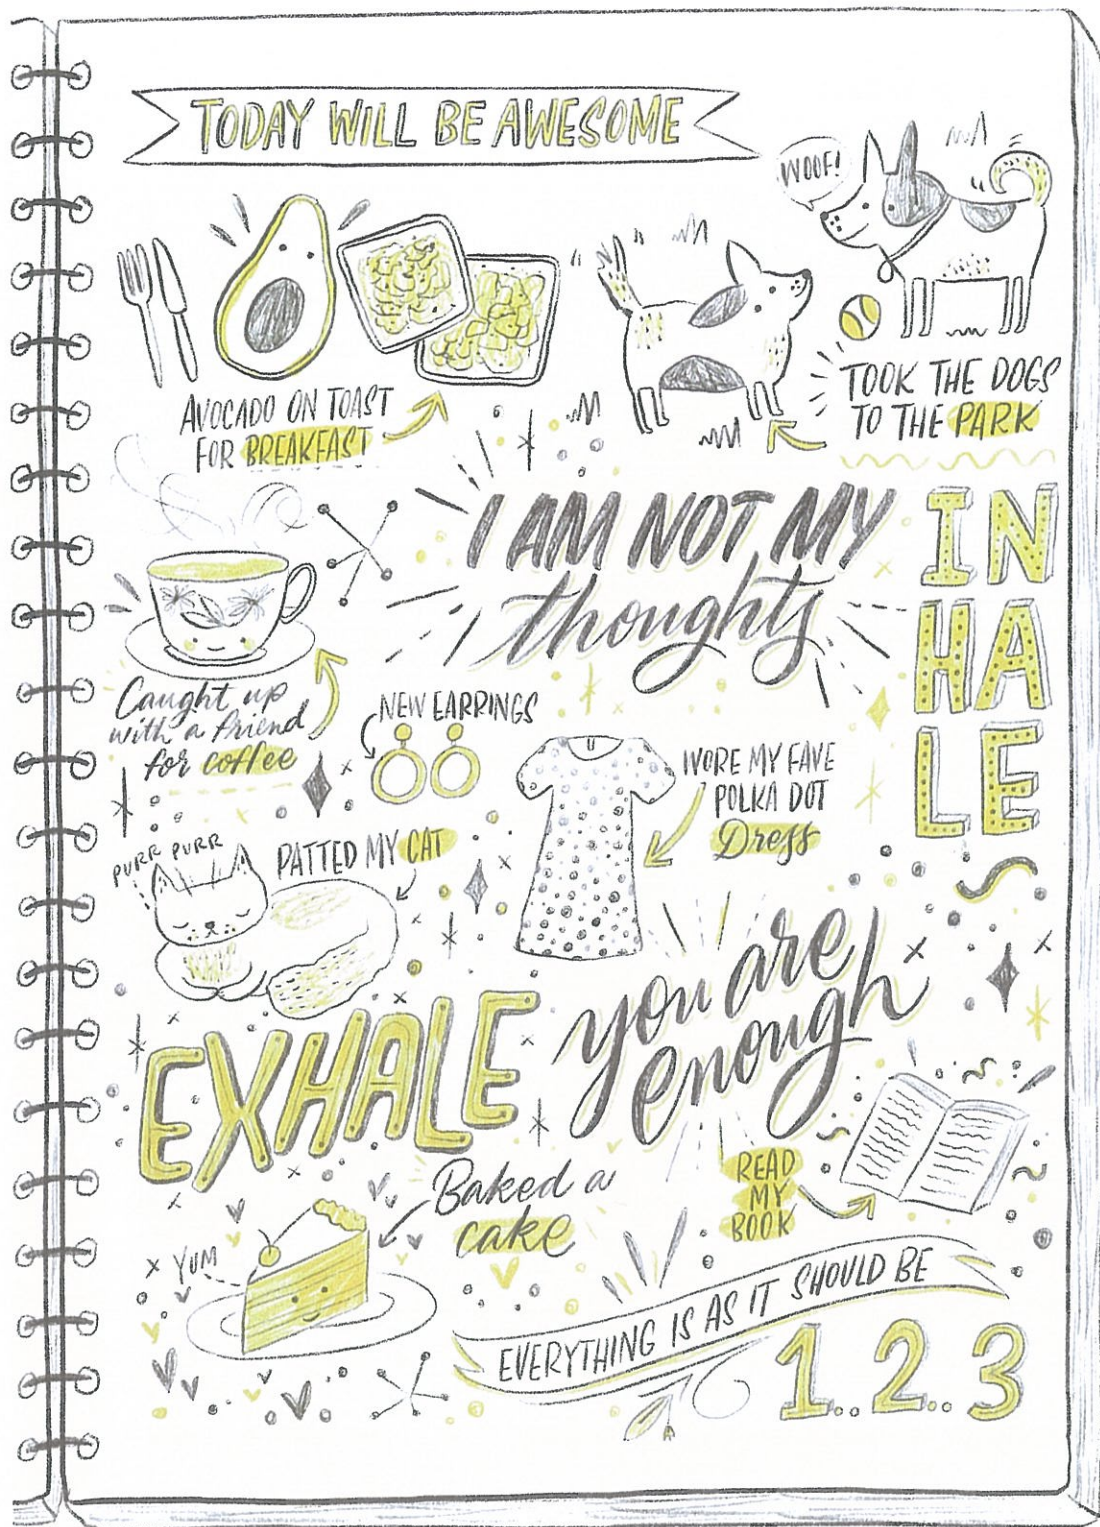 TODAY WILL BE AWESOME
WOOF!
AVOCADO ON TOAST
FOR BREAKFAST
TOOK THE DOGS
TO THE PARK
I AM NOT MY
thoughts
IN
HA
LE
Caught up
with a friend
for coffee
NEW EARRINGS
WORE MY FAVE
POLKA DOT
Dress
PURR PURR
PATTED MY CAT
you are
enough
EXHALE
Baked a
cake
YUM
READ
MY
BOOK
EVERYTHING IS AS IT SHOULD BE
1..2..3